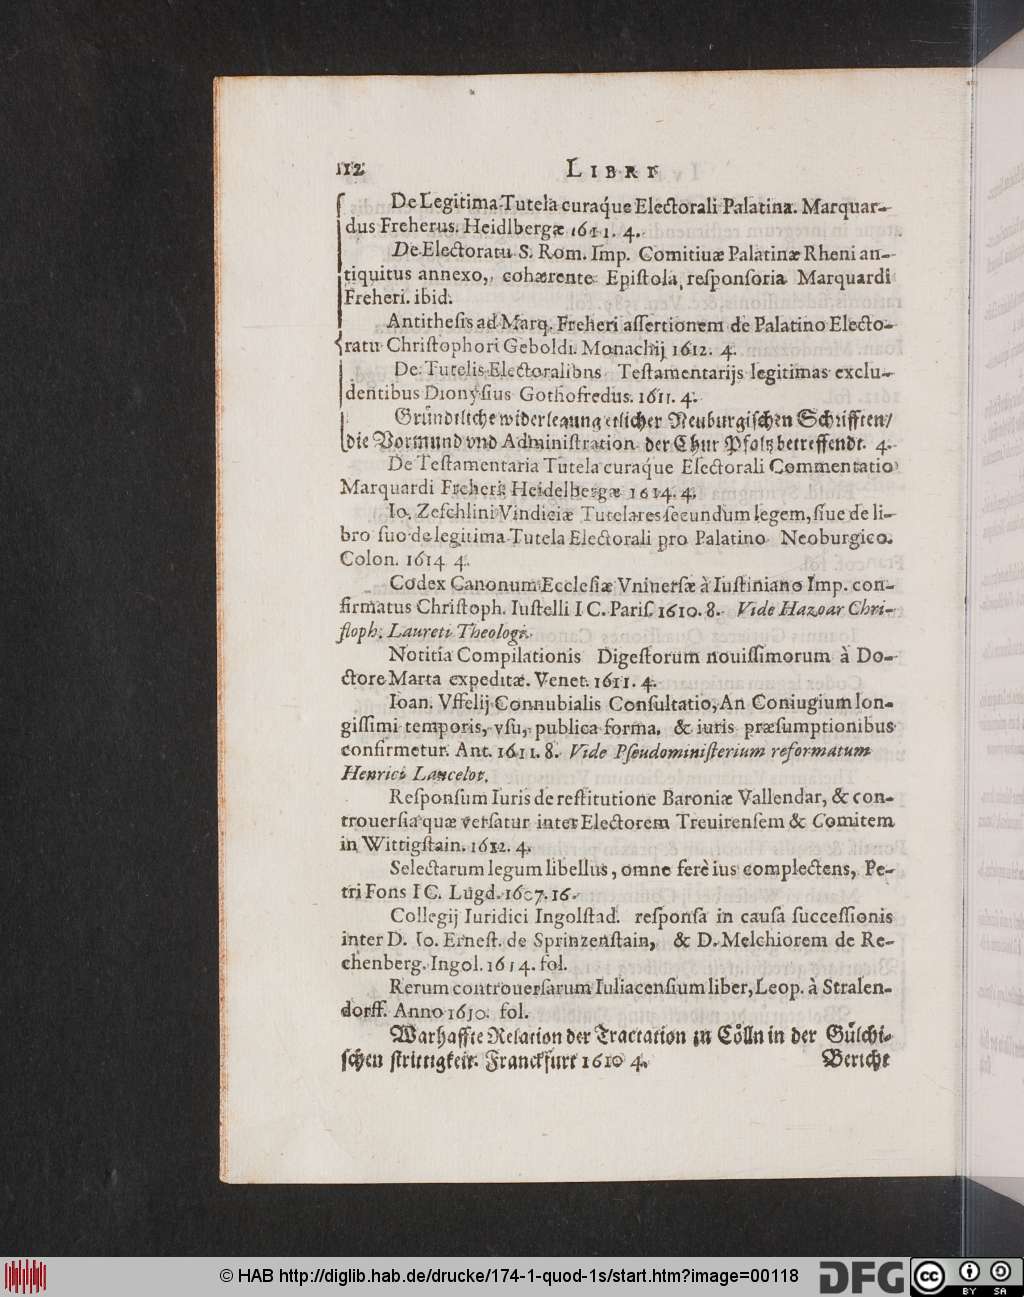 112 LIBRI
De Legitima Tutela curaq́ue Electorali Palatina. Marquar-
dus Freherus. Heidlbergæ 1611. 4.
De Electoratu S. Rom. Imp. Comitiuæ Palatinæ Rheni an-
tiquitus annexo, cohærente Epiſtola, reſponſoria Marquardi
Freheri. ibid.
Antitheſis ad Marq. Freheri aſſertionem de Palatino Electo-
ratu Chriſtophori Geboldi. Monachij 1612. 4.
De Tutelis Electoralibns Teſtamentarijs legitimas exclu-
dentibus Dionyſius Gothofredus. 1611. 4.
Gründtliche widerlegung etlicher Neuburgiſchen Schrifften/
die Vormund vnd Adminiſtration der Chur Pfaltz betreffendt. 4.
De Teſtamentaria Tutela curaq́ue Electorali Commentatio
Marquardi Freheri Heidelbergæ 1614. 4.
Io. Zeſchlini Vindiciæ Tutelares ſecundum legem, ſiue de li-
bro ſuo de legitima Tutela Electorali pro Palatino Neoburgico.
Colon. 1614 4.
Codex Canonum Eccleſiæ Vniuerſæ à Iuſtiniano Imp. con-
firmatus Chriſtoph. Iuſtelli I C. Pariſ. 1610. 8. Vide Hazoar Chri-
ſtoph. Laureti Theologi.
Notitia Compilationis Digeſtorum nouiſſimorum à Do-
ctore Marta expeditæ. Venet. 1611. 4.
Ioan. Vſſelij Connubialis Conſultatio, An Coniugium lon-
giſſimi temporis, vſu, publica forma, & iuris præſumptionibus
confirmetur. Ant. 1611. 8. Vide Pſeudominiſterium reformatum
Henrici Lancelot.
Reſponſum Iuris de reſtitutione Baroniæ Vallendar, & con-
trouerſia quæ verſatur inter Electorem Treuirenſem & Comitem
in Wittigſtain. 1612. 4.
Selectarum legum libellus, omne ferè ius complectens, Pe-
tri Fons I C. Lugd. 1607. 16.
Collegij Iuridici Ingolſtad. reſponſa in cauſa ſucceſſionis
inter D. Io. Erneſt. de Sprinzenſtain, & D. Melchiorem de Re-
chenberg. Ingol. 1614. fol.
Rerum controuerſarum Iuliacenſium liber, Leop. à Stralen-
dorff. Anno 1610. fol.
Warhaffte Relation der Tractation zu Cölln in der Gülchi-
ſchen ſtrittigkeit. Franckfurt 1610 4. Bericht
© HAB http://diglib.hab.de/drucke/174-1-quod-1s/start.htm?image=00118 DFG cc BY SA